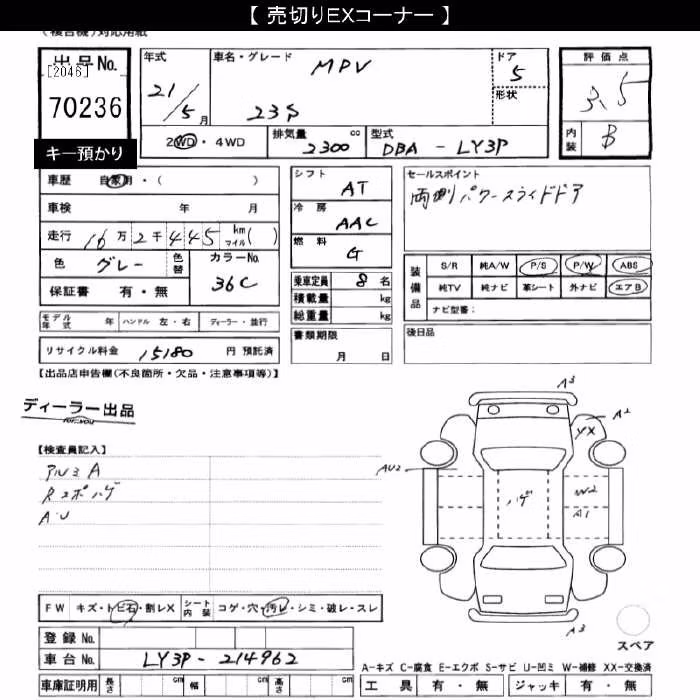 【 売切りEXコーナー 】
(複合機)対応用紙
出品No.
[2046]
70236
キー預かり
年式
21/5月
車名・グレード
MPV
23S
ドア
5
形状
評価点
3.5
内装 B
2WD・4WD
排気量 2300 cc
型式 DBA - LY3P
車歴 自家用・( )
車検 年 月
走行 16万2千445 km マイル( )
色 グレー 色替 カラーNo. 36C
保証書 有・無
シフト AT
冷房 AAC
燃料 G
乗車定員 8 名
積載量 kg
総重量 kg
書類期限
月 日
セールスポイント
両側パワースライドドア
装備品
S/R 純A/W P/S P/W ABS
純TV 純ナビ 革シート 外ナビ エアB
ナビ型番:
後日品
モデル年式 年 ハンドル 左・右 ディーラー・並行
リサイクル料金 15180 円 預託済
【出品店申告欄(不良箇所・欠品・注意事項等)】
ディーラー出品
for you
【検査員記入】
アルミA
Rスポハゲ
A・U
A3
A2
YX
AU2
ハゲ
W2
A1
A3
スペア
FW キズ・トビ石・割レX シート内装 コゲ・穴・汚レ・シミ・破レ・スレ
登録No.
車台No. LY3P-214962
車庫証明用 長さ cm 幅 cm 高さ cm
A-キズ C-腐食 E-エクボ S-サビ U-凹ミ W-補修 XX-交換済
工具 有・無 ジャッキ 有・無